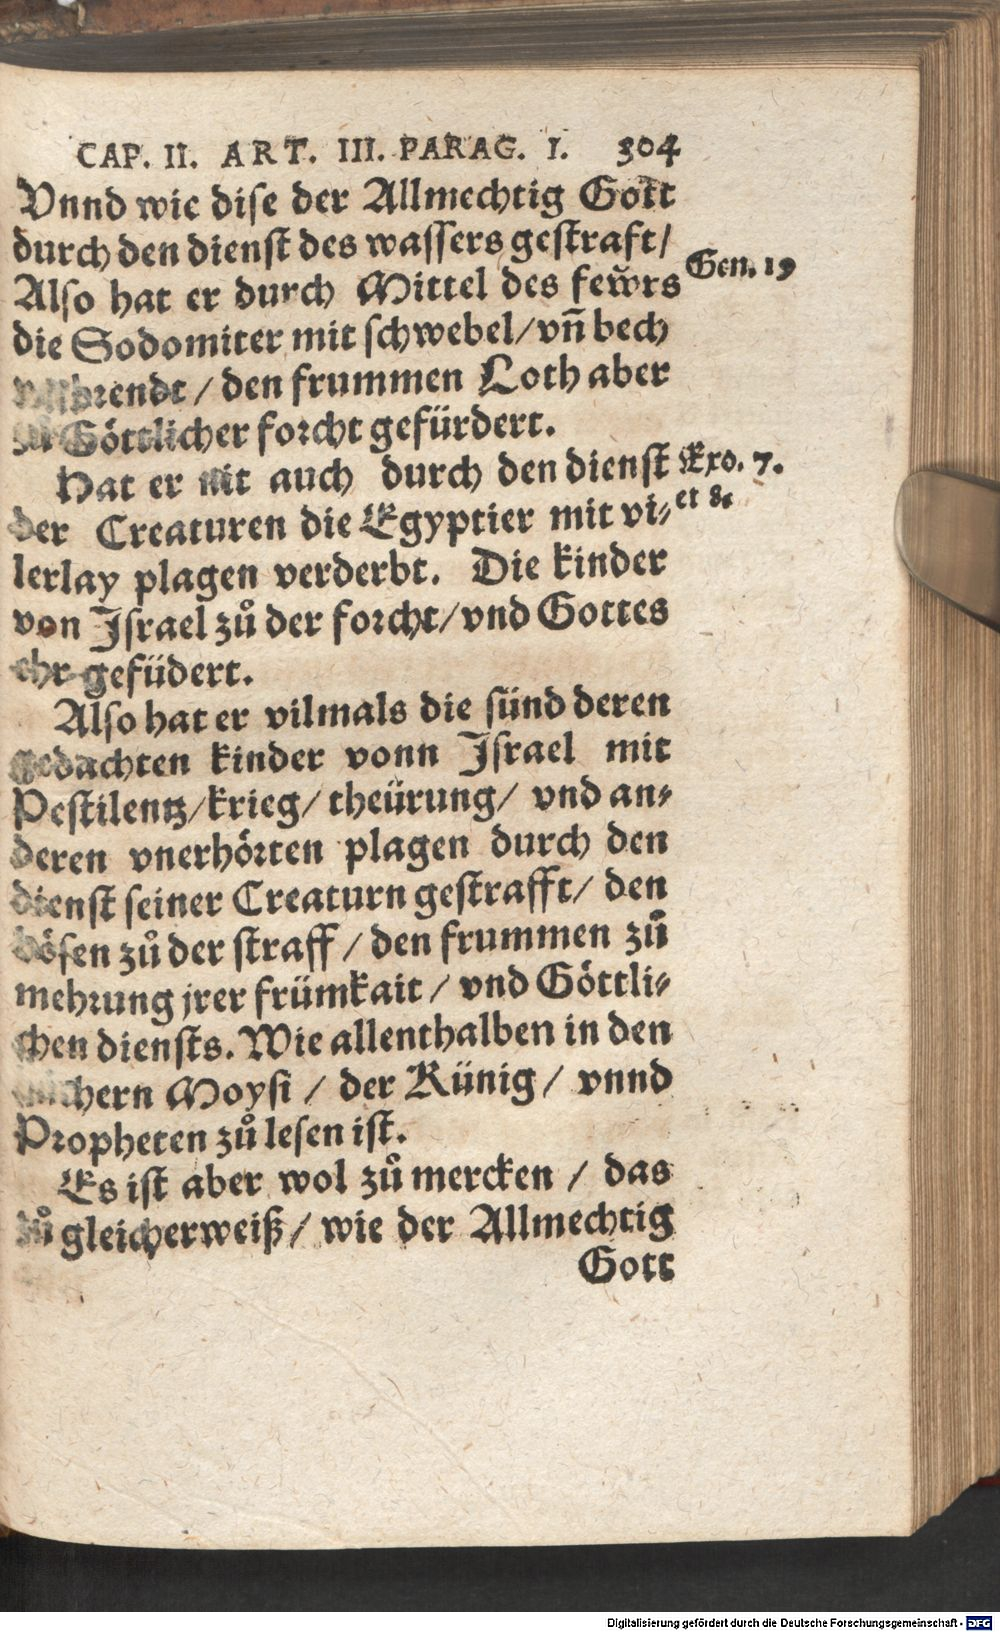 CAP. II. ART. III. PARAG. I. 304
Vnnd wie dise der Allmechtig Gott
durch den dienst des wassers gestraft/
Gen. 19
Also hat er durch Mittel des fewrs
die Sodomiter mit schwebel/vñ bech
/ den frummen Loth aber
zů Göttlicher forcht gefürdert.
Hat er nit auch durch den dienst
Exo. 7.
et 8.
der Creaturen die Egyptier mit vi-
lerlay plagen verderbt. Die kinder
von Israel zů der forcht/vnd Gottes
ehr gefüdert.
Also hat er vilmals die sünd deren
gedachten kinder vonn Israel mit
Pestilentz/krieg/ theürung/ vnd an-
deren vnerhörten plagen durch den
dienst seiner Creaturn gestrafft/ den
bösen zů der straff / den frummen zů
mehrung jrer frümkait / vnd Göttli-
chen diensts. Wie allenthalben in den
büchern Moysi / der Künig/ vnnd
Propheten zů lesen ist.
Es ist aber wol zů mercken / das
zů gleicherweiß/ wie der Allmechtig
Gott
Digitalisierung gefördert durch die Deutsche Forschungsgemeinschaft - DFG